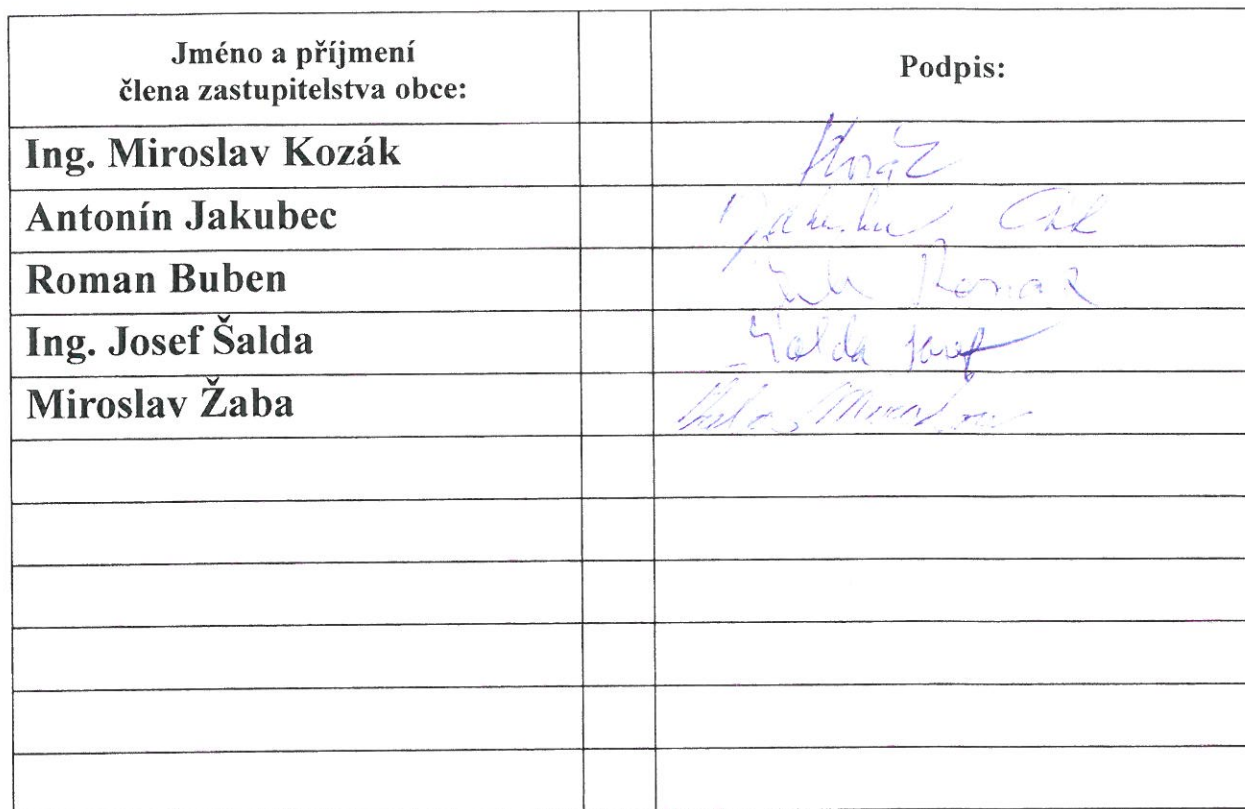 Jméno a příjmení
člena zastupitelstva obce:
Podpis:
Ing. Miroslav Kozák
Kozák
Antonín Jakubec
Roman Buben
Roman
Ing. Josef Šalda
Šalda Josef
Miroslav Žaba